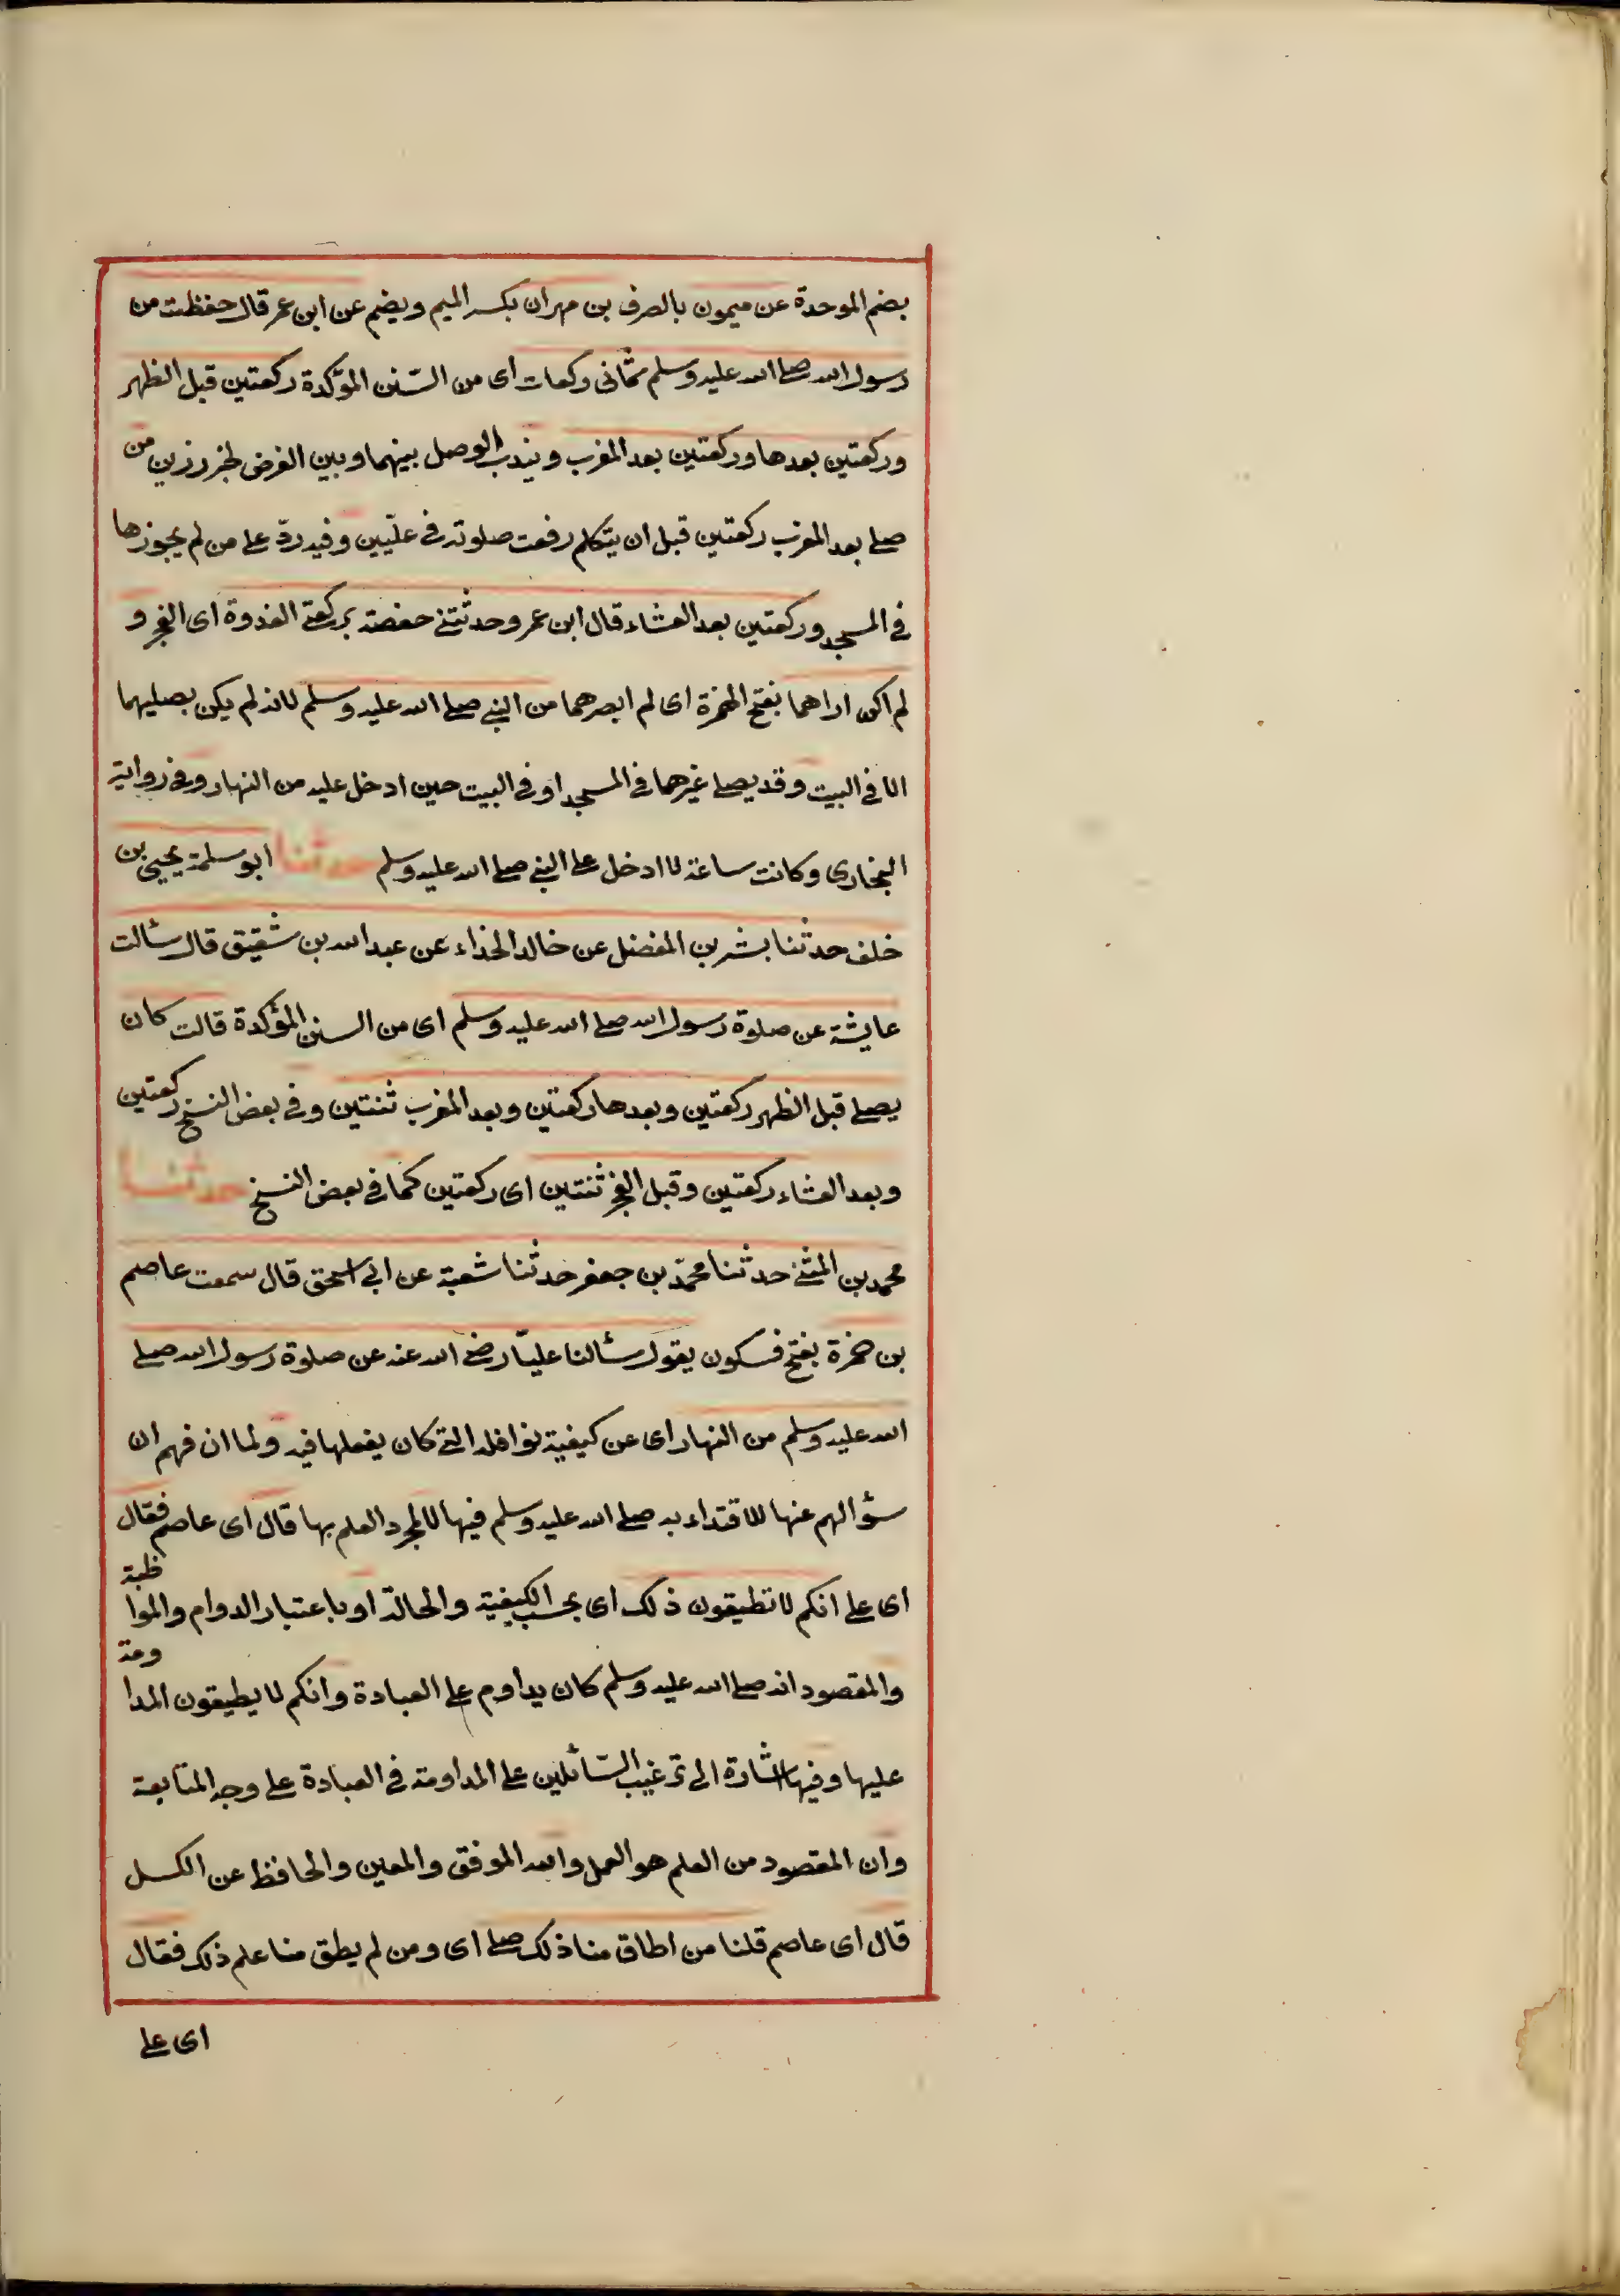 بضم الموحدة عن ميمون بالصرف بن مهران بكسر الميم ويضم عن ابن عمر قال حفظت من
رسول الله صلى الله عليه وسلم ثمانى ركعات اى من السّنن المؤكدة ركعتين قبل الظهر
وركعتين بعدها وركعتين بعد المغرب ويندب الوصل بينهما وبين الفرض لخبر رزين من
صلى بعد المغرب ركعتين قبل ان يتكلم رفعت صلوته فى علّيين وفيه ردّ على من لم يجوزها
فى المسجد وركعتين بعد العشاء قال ابن عمر وحدثتنى حفصة بركعتى الغدوة اى الفجر و
لم اكن اراهما بفتح الهمزة اى لم ابصرهما من النبى صلى الله عليه وسلم لانه لم يكن يصليهما
الا فى البيت وقد يصلى غيرهما فى المسجد او فى البيت حين ادخل عليه من النهار وفى رواية
البخارى وكانت ساعة لا ادخل على النبى صلى الله عليه وسلم حدثنا ابو سلمة يحيى بن
خلف حدثنا بشر بن المفضل عن خالد الحذاء عن عبد الله بن شقيق قال سئالت
عايشة عن صلوة رسول الله صلى الله عليه وسلم اى من السنن المؤكدة قالت كان
يصلى قبل الظهر ركعتين وبعدها ركعتين وبعد المغرب ثنتين وفى بعض النسخ ركعتين
وبعد العشاء ركعتين وقبل الفجر ثنتين اى ركعتين كما فى بعض النسخ حدثنا
محمد بن المثنى حدثنا محمّد بن جعفر حدثنا شعبة عن ابى اسحق قال سمعت عاصم
بن ضمرة بفتح فسكون يقول سئالنا عليّا رضى الله عنه عن صلوة رسول الله صلى
الله عليه وسلم من النهار اى عن كيفية نوافله التى كان يفعلها فيه ولما ان فهم ان
سؤالهم عنها للاقتداء به صلى الله عليه وسلم فيها لا لمجرد العلم بها قال اى عاصم فقال
اى على انكم لا تطيقون ذلك اى بحسب الكيفية والحالة او باعتبار الدوام والمواظبة
والمقصود انه صلى الله عليه وسلم كان يداوم على العبادة وانكم لا يطيقون المداومة
عليها وفيها اشارة الى ترغيب السّائلين على المداومة فى العبادة على وجه المتابعة
وان المقصود من العلم هو العمل والله الموفق والمعين والحافظ عن الكسل
قال اى عاصم قلنا من اطاق منا ذلك صلى اى ومن لم يطق منا علم ذلك فقال
اى على